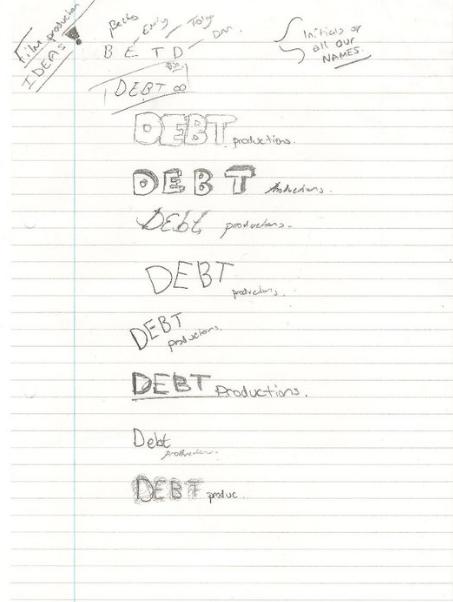 Film production
IDEA =
Becks Emily Toby Dan
B E T D
Initials of
all our
NAMES.
DEBT
DEBT productions.
DEBT productions.
Debt productions.
DEBT
productions.
DEBT
productions.
DEBT productions.
Debt
productions.
DEBT produc.